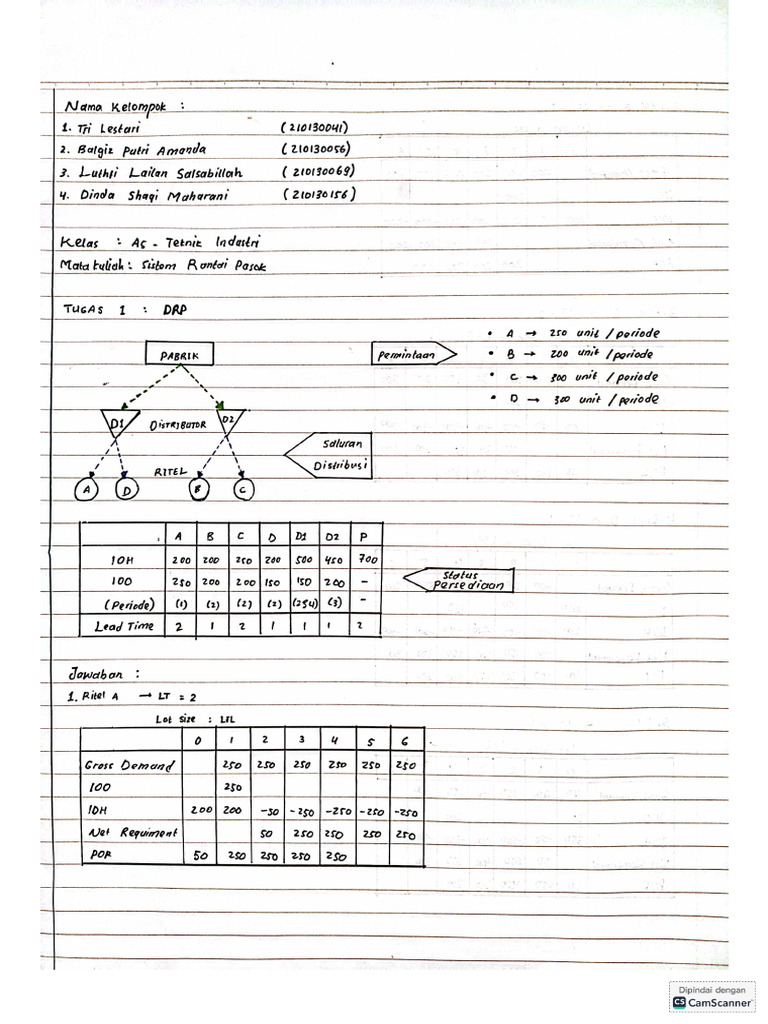 Nama Kelompok :
1. Tri Lestari (210130041)
2. Balgiz Putri Amanda (210130056)
3. Luthfi Lailan Salsabillah (210130069)
4. Dinda Shaqi Maharani (210130156)
Kelas : A5 - Teknik Industri
Mata kuliah : Sistem Rantai Pasok
TUGAS 1 : DRP
PABRIK
D1 DISTRIBUTOR D2
RITEL
A D B C
Permintaan
• A → 250 unit / periode
• B → 200 unit / periode
• C → 300 unit / periode
• D → 300 unit / periode
Saluran
Distribusi
A B C D D1 D2 P
IOH 200 200 250 200 500 450 700
IOO 250 200 200 150 150 200 -
(Periode) (1) (2) (2) (2) (2&4) (3) -
Lead Time 2 1 2 1 1 1 2
Status
Persediaan
Jawaban :
1. Ritel A → LT = 2
Lot size : LFL
0 1 2 3 4 5 6
Gross Demand 250 250 250 250 250 250
IOO 250
IOH 200 200 -50 -250 -250 -250 -250
Net Requiment 50 250 250 250 250
POR 50 250 250 250 250
Dipindai dengan
CS CamScanner